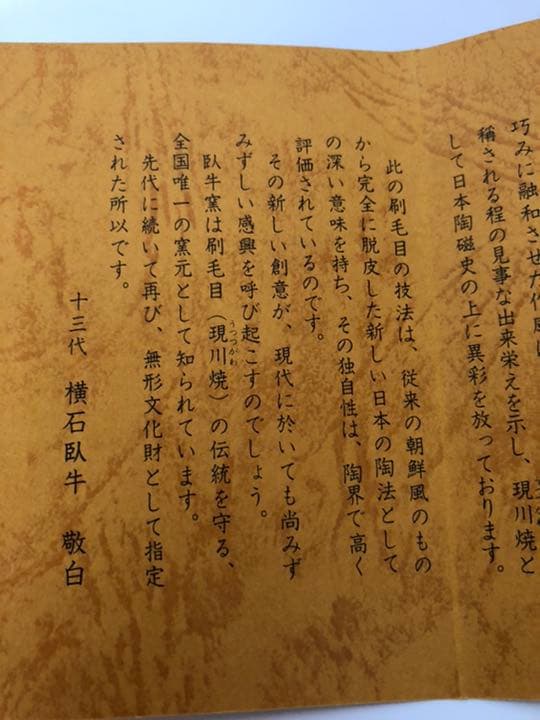 巧みに融和させた作風は
稱される程の見事な出来栄えを示し、現川焼と
して日本陶磁史の上に異彩を放っております。
此の刷毛目の技法は、従来の朝鮮風のもの
から完全に脱皮した新しい日本の陶法として
の深い意味を持ち、その独自性は、陶界で高く
評価されているのです。
その新しい創意が、現代に於いても尚みず
みずしい感興を呼び起こすのでしょう。
臥牛窯は刷毛目（現川焼）の伝統を守る、
うつつがわ
全国唯一の窯元として知られています。
先代に続いて再び、無形文化財として指定
された所以です。
十三代 横石臥牛 敬白